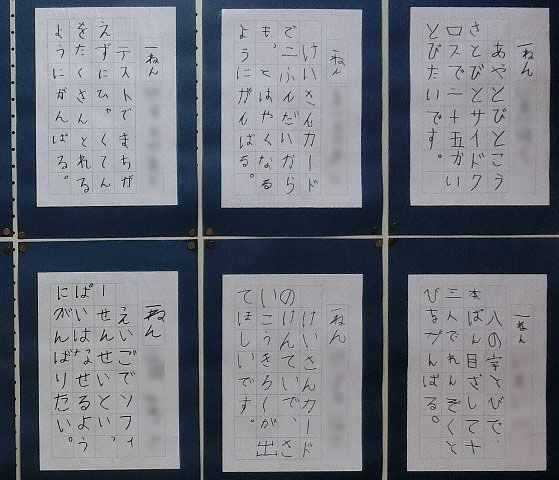 一ねん
あやとびとこう
さとびとサイドク
ロスで二十五かい
とびたいです。
一ねん
けいさんカード
で二ふんだいから
もっとはやくなる
ようにがんばる。
一ねん
テストでまちが
えずにひゃくてん
をたくさんとれる
ようにがんばる。
一ねん
八の字とびで、
本ばん目ざして十
三人でれんぞくと
びをがんばる。
一ねん
けいさんカード
のけんていで、さ
いこうきろくが出
てほしいです。
一ねん
えいごでソフィ
ーせんせいといっ
ぱいはなせるよう
にがんばりたい。